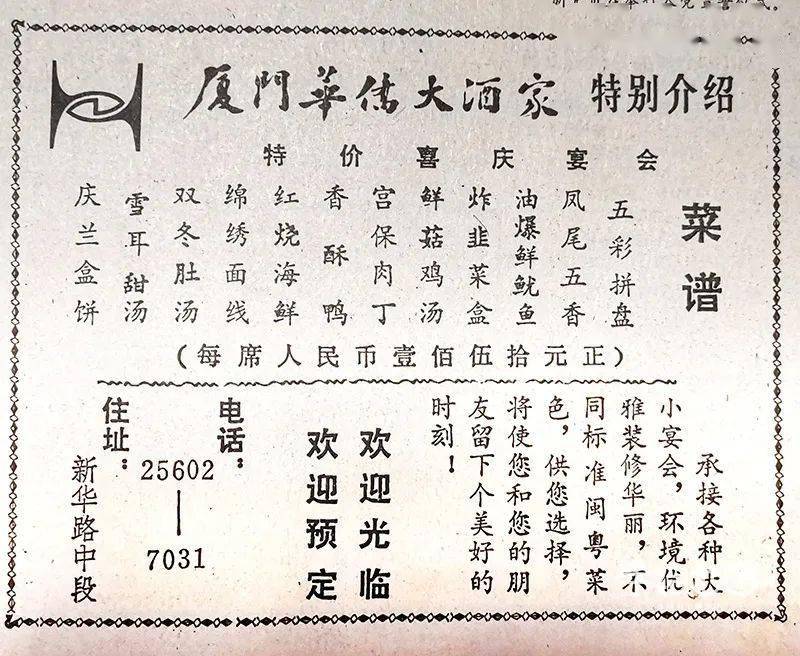 厦門華侨大酒家 特别介绍
特价喜庆宴会
菜谱
五彩拼盘
凤尾五香
油爆鲜鱿鱼
炸韭菜盒
鲜菇鸡汤
宫保肉丁
香酥鸭
红烧海鲜
绵绣面线
双冬肚汤
雪耳甜汤
庆兰盒饼
（每席人民币壹佰伍拾元正）
承接各种大
小宴会，环境优
雅装修华丽，不
同标准闽粤菜
色，供您选择，
将使您和您的朋
友留下个美好的
时刻！
欢迎光临
欢迎预定
电话：
25602
|
7031
住址：
新华路中段